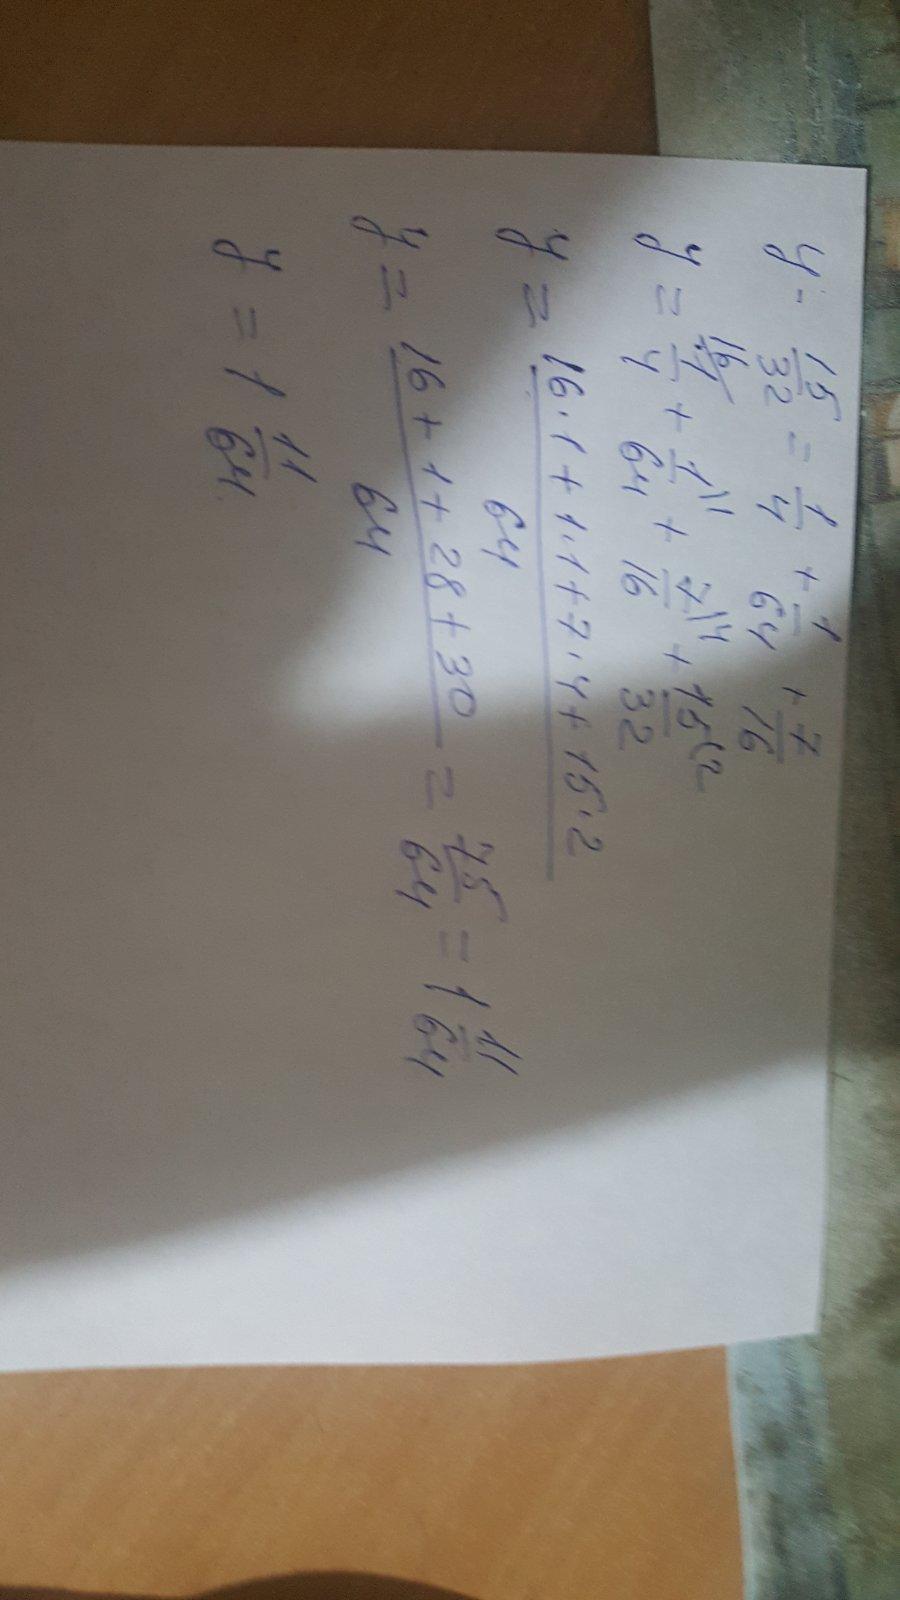 y - 15/32 = 1/4 + 1/64 + 7/16
y = 1/4\16 + 1/64\1 + 7/16\4 + 15/32\2
y = 16·1 + 1·1 + 7·4 + 15·2 / 64
y = 16 + 1 + 28 + 30 / 64 = 75/64 = 1 11/64
y = 1 11/64